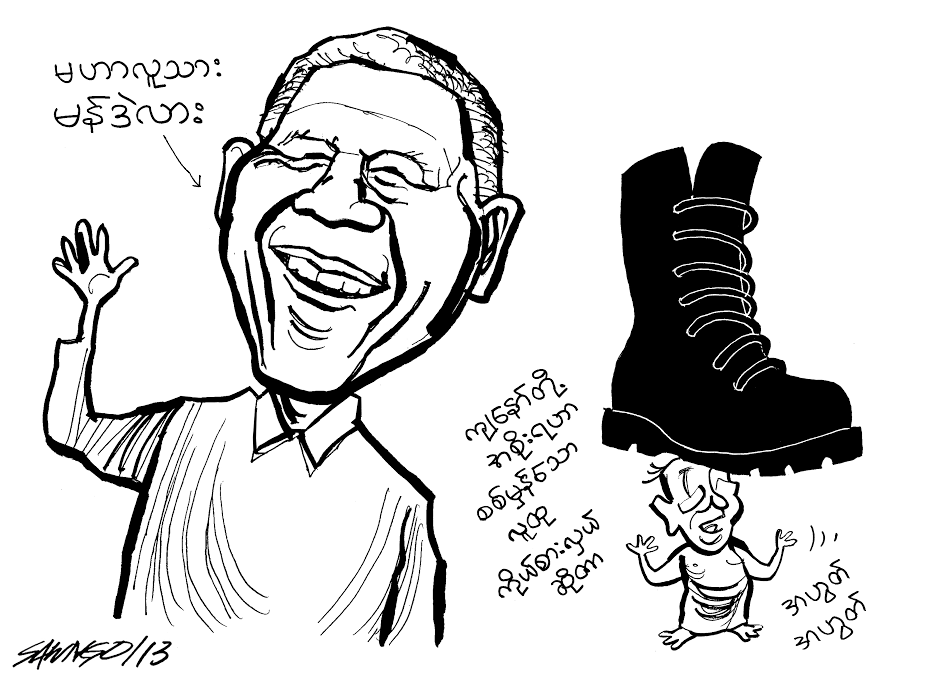 မဟာလူသား
မန်ဒဲလား
ကျနော်တို့
အစိုးရဟာ
စစ်မှန်သော
လူထု
ကိုယ်စားလှယ်
ဆိုတာ
အဟွတ်
အဟွတ်
SAWNGO/13